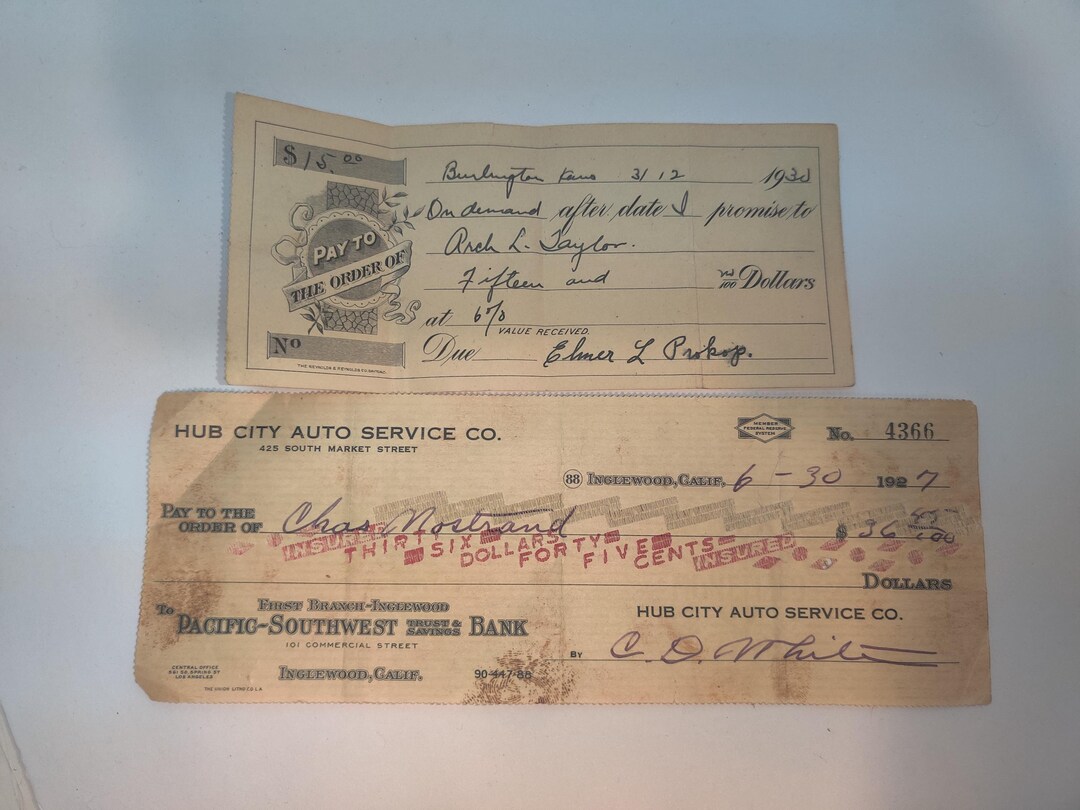 $ 15.00
Burlington Kans 3/12 1930
On demand after date I promise to
PAY TO
THE ORDER OF
Arch L. Taylor.
Fifteen and no/100 Dollars
at 6%
VALUE RECEIVED.
No
Due Elmer L Prokop.
THE REYNOLDS & REYNOLDS CO. DAYTON, O.
HUB CITY AUTO SERVICE CO.
425 SOUTH MARKET STREET
MEMBER
FEDERAL RESERVE
SYSTEM
No. 4366
88 INGLEWOOD, CALIF. 6-30 1927
PAY TO THE
ORDER OF Chas. Nostrand $ 36 45/100
INSURED THIRTY SIX DOLLARS FORTY FIVE CENTS INSURED
DOLLARS
To FIRST BRANCH-INGLEWOOD
PACIFIC-SOUTHWEST TRUST & SAVINGS BANK
101 COMMERCIAL STREET
INGLEWOOD, CALIF. 90-447-88
CENTRAL OFFICE
561 SO. SPRING ST
LOS ANGELES
THE UNION LITHO CO. L.A.
HUB CITY AUTO SERVICE CO.
BY C. D. White